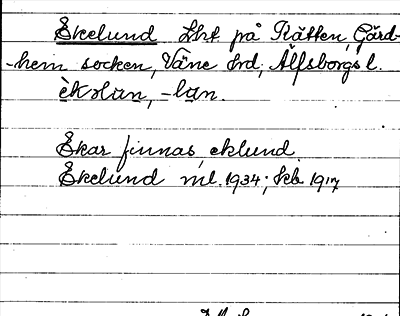 Ekelund Lht på Rätten, Gärd-
-hem socken, Väne hrd, Älfsborgs l.
èkɷlun, -lun.
Ekar finnas, eklund.
Ekelund ml. 1934; kb 1917